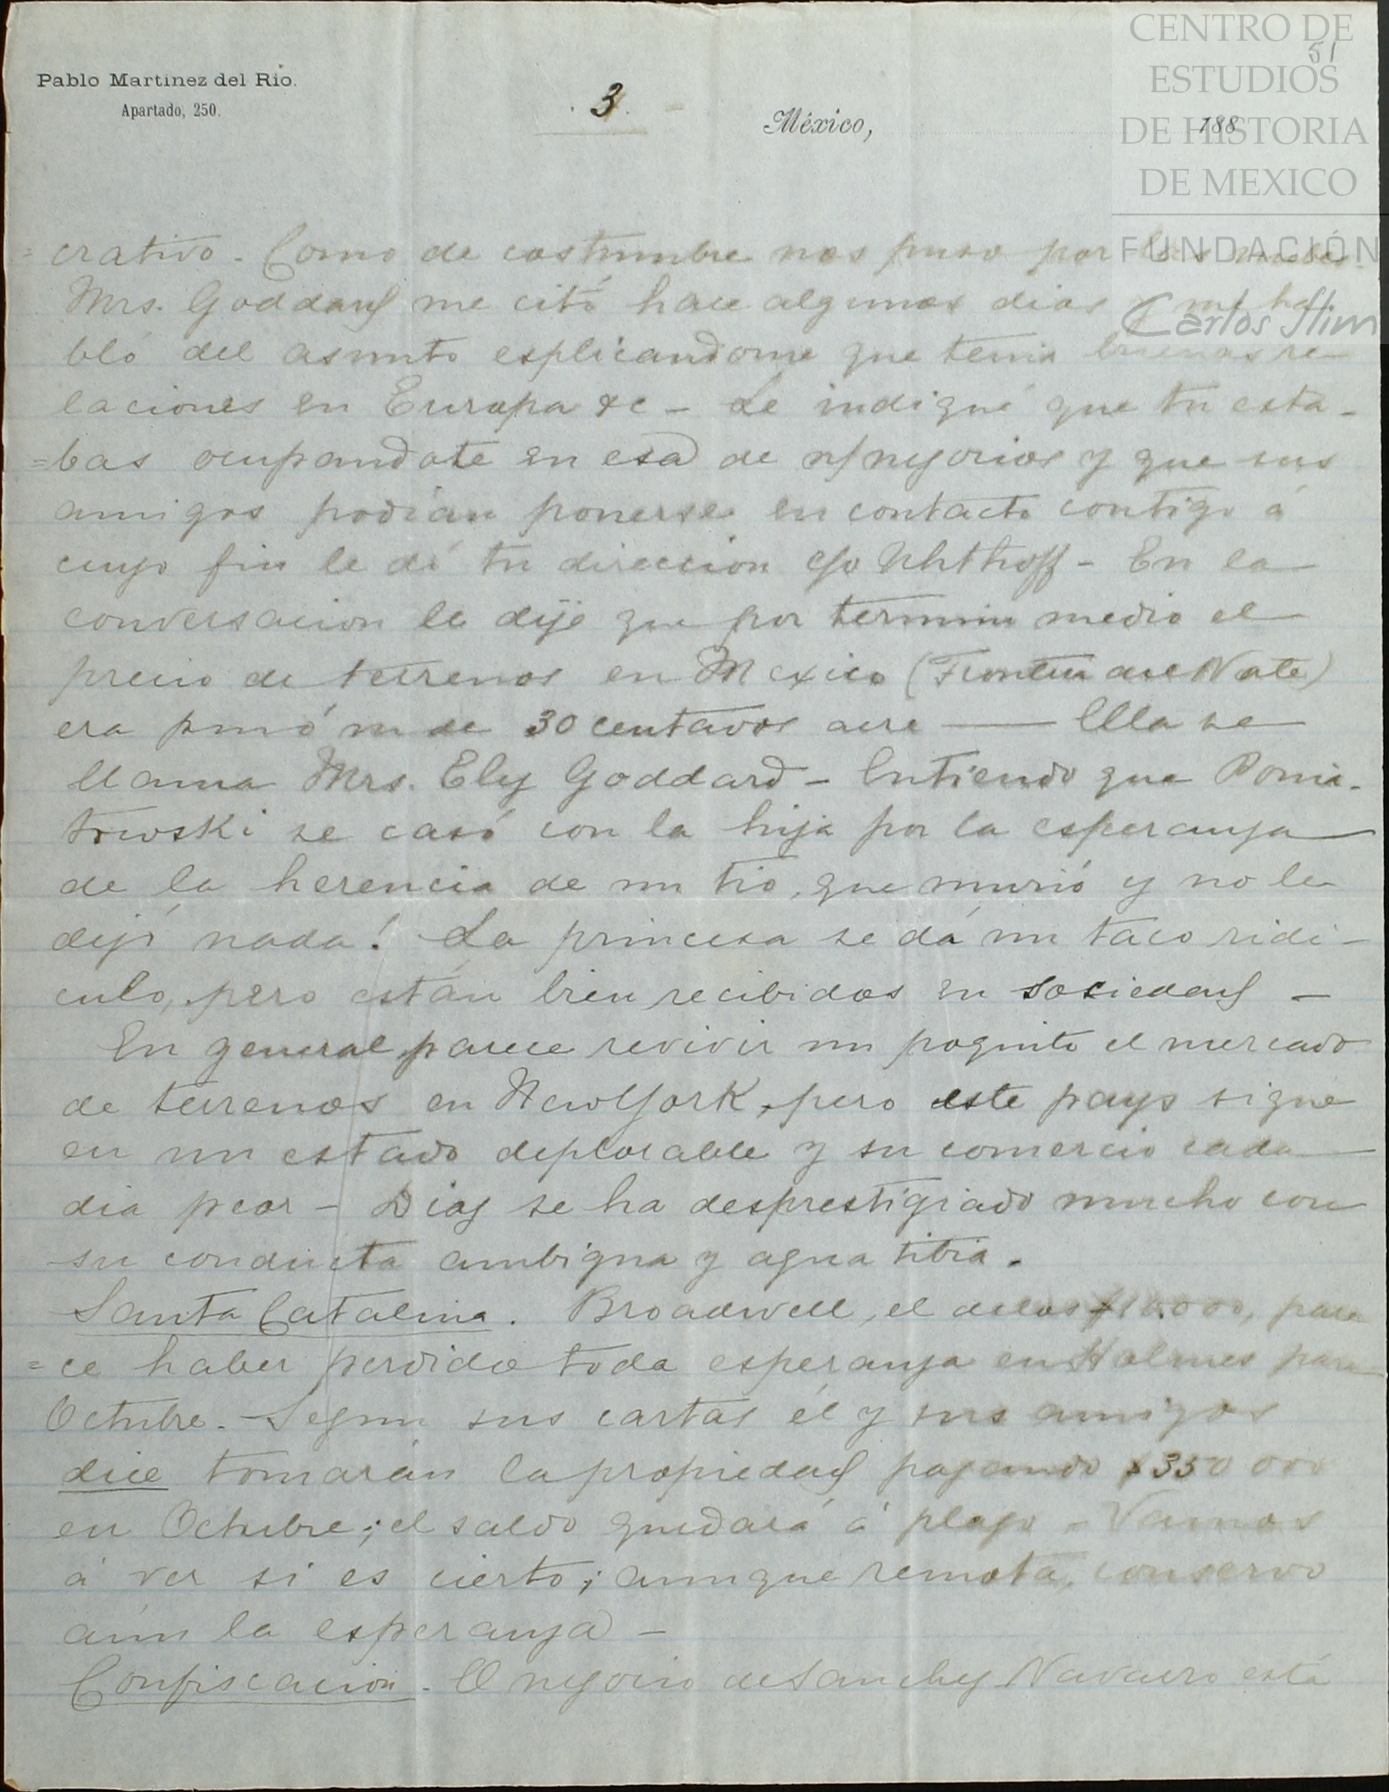 CENTRO DE
ESTUDIOS
DE HISTORIA
DE MEXICO
FUNDACIÓN
Carlos Slim
51
Pablo Martinez del Rio.
Apartado, 250.
3
México, 188
=crativo. Como de costumbre nos puso por las nubes.
Mrs. Goddard me citó hace algunos dias y me ha-
bló del asunto esplicandome que tenia buenas re-
laciones en Europa &c - Le indiqué que tu esta-
=bas ocupandote en esa de n/negocios y que sus
amigos podían ponerse en contacto contigo á
cuyo fin le dí tu direccion c/o Uhthoff - En la
conversacion le dije que por termino medio el
precio de terrenos en Mexico (Frontera del Norte)
era de 30 centavos acre — Ella se
llama Mrs. Ely Goddard - Entiendo que Ponia-
towski se casó con la hija por la esperanza
de la herencia de un tio, que murió y no le
dejó nada! La princesa se dá un taco ridi-
culo, pero están bien recibidos en sociedad -
En general parece revivir un poquito el mercado
de terrenos en New York, pero este pays sigue
en un estado deplorable y su comercio cada
dia peor - Diaz se ha desprestigiado mucho con
su conducta ambigua y agua tibia.
Santa Catalina. Broadwell, el de los $10.000, pare
=ce haber perdido toda esperanza en Holmes para
Octubre. Segun sus cartas él y sus amigos
dice tomarán la propiedad pagando $350 000
en Octubre; el saldo quedará á plazo - Vamos
á ver si es cierto; aunque remota, conservo
aún la esperanza -
Confiscacion. El negocio de Sanchez Navarro está